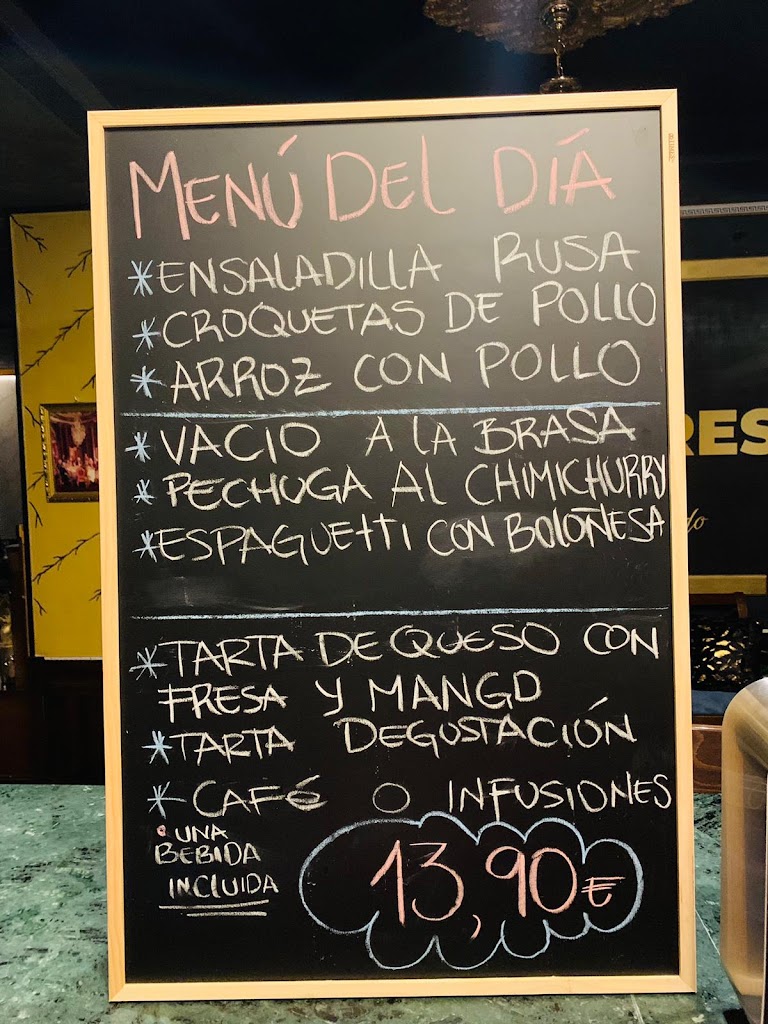 MENÚ DEL DÍA
*ENSALADILLA RUSA
*CROQUETAS DE POLLO
*ARROZ CON POLLO
*VACIO A LA BRASA
*PECHUGA AL CHIMICHURRY
*ESPAGUETTI CON BOLOÑESA
*TARTA DE QUESO CON
FRESA Y MANGO
*TARTA DEGUSTACIÓN
*CAFÉ O INFUSIONES
•UNA
BEBIDA
INCLUIDA
13,90€
RES
do